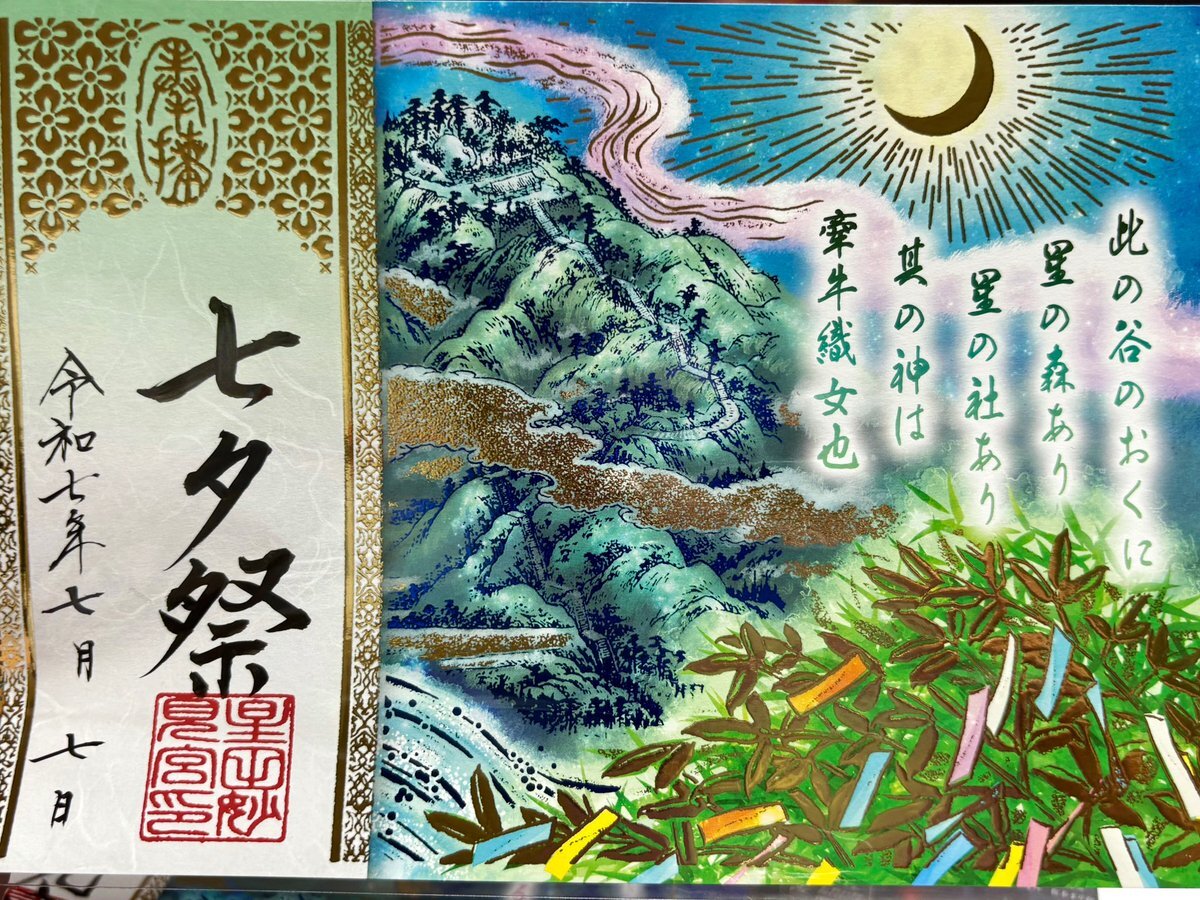 此の谷のおくに
星の森あり
星の社あり
其の神は
牽牛織女也
奉拝
七夕祭
星田妙
見宮印
令和七年七月 七日